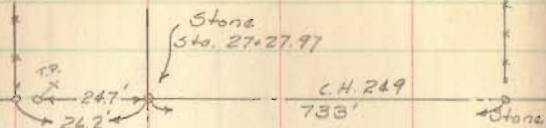 Stone
Sta. 27+27.97
T.P.
24.7'
C.H. 249
26.2'
733'
Stone